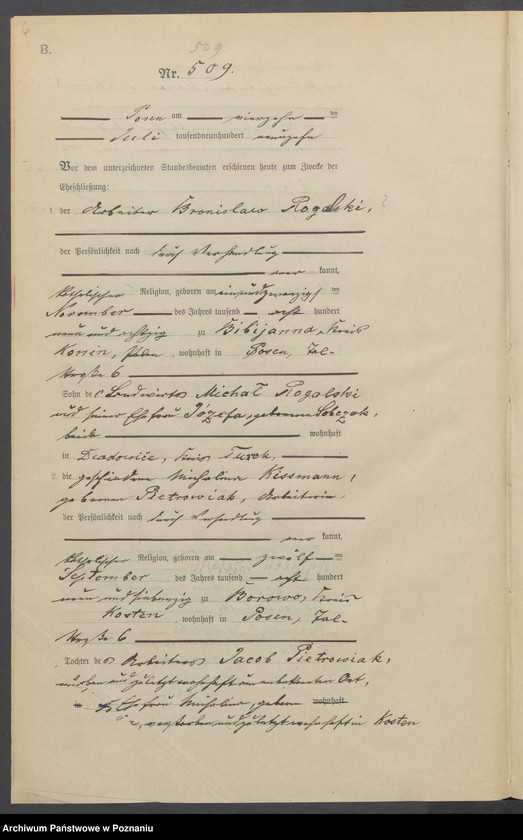 6
B.
509
Nr. 509.
Posen am vierzehn ten
Juli tausendneunhundert neunzehn
Vor dem unterzeichneten Standesbeamten erschienen heute zum Zwecke der
Eheschließung:
1. der Arbeiter Bronislaw Rogalski,
der Persönlichkeit nach durch Verhandlung
aner kannt,
katholischer Religion, geboren am einundzwanzigsten
November des Jahres tausend acht hundert
neun und achtzig zu Bibijanna, Kreis
Konin, Polen, wohnhaft in Posen, Tal-
straße 6
Sohn des Landwirts Michał Rogalski
und seiner Ehefrau Józefa, geborene Sobczak,
beide wohnhaft
in Dzadowice, Kreis Turek,
2. die geschiedene Michalina Kissmann,
geborene Pietrowiak, Arbeiterin
der Persönlichkeit nach durch Verhandlung
aner kannt,
katholischer Religion, geboren am zwölf ten
September des Jahres tausend acht hundert
neun und siebenzig zu Borowo, Kreis
Kosten, wohnhaft in Posen, Tal-
straße 6
Tochter des Arbeiters Jacob Pietrowiak,
verstorben und zuletzt wohnhaft am unbekannten Ort,
Ehefrau Michalina, geborene wohnhaft
verstorben und zuletzt wohnhaft in Kosten
Archiwum Państwowe w Poznaniu